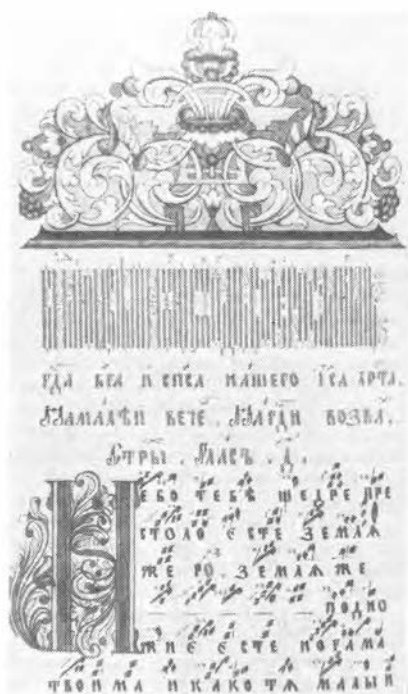 гд҃а бг҃а и сп҃са нашего і҃са хр҃та.
Намалѣи вече. На гд҃и возва.
Стры. Гласъ. д҃.
Небо тебѣ щедре пре
столо есте земля
же ро земля же
подно
жиє єсте ногама
твоима и како тя малыи